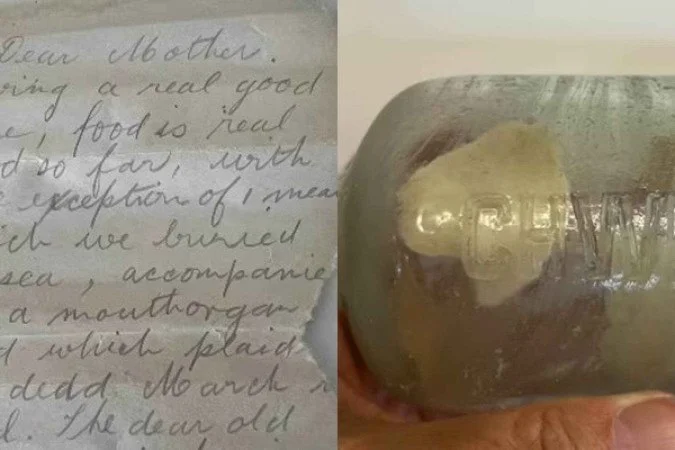 Dear Mother.
ving a real good
e, food is real
d so far, with
e exception of 1 mea
ich we buried
sea, accompanie
a mouthorgan
d which plaid
dedd March
l. The dear old